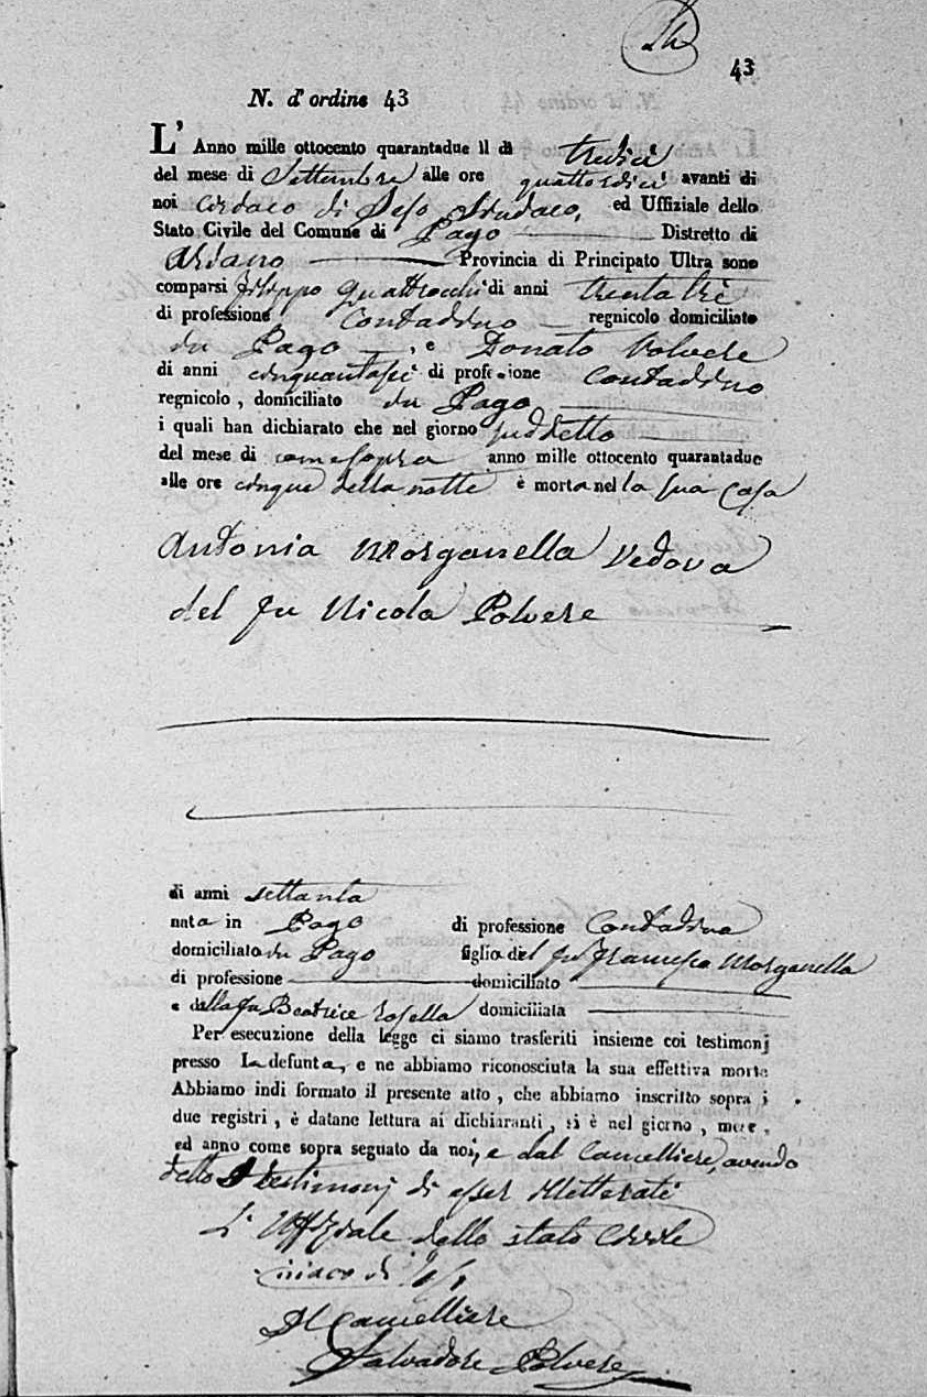 43
N. d'ordine 43
L' Anno mille ottocento quarantadue il dì tredici
del mese di Settembre alle ore quattordici avanti di
noi Ciriaco di Sindaco, ed Uffiziale dello
Stato Civile del Comune di Pago Distretto di
Ariano Provincia di Principato Ultra sono
comparsi Filippo Quattrocchi di anni trentatrè
di professione Contadino regnicolo domiciliato
in Pago , e Donato Polvere
di anni cinquantasei di professione Contadino
regnicolo , domiciliato in Pago
i quali han dichiarato che nel giorno suddetto
del mese di come sopra anno mille ottocento quarantadue
alle ore cinque della notte è morta nella sua casa
Antonia Morganella Vedova
del fu Nicola Polvere
di anni settanta
nata in Pago di professione Contadina
domiciliata in Pago figlia del fu Francesco Morganella
di professione domiciliato
e della fu Beatrice domiciliata
Per esecuzione della legge ci siamo trasferiti insieme coi testimonj
presso la defunta, e ne abbiamo riconosciuta la sua effettiva morte
Abbiamo indi formato il presente atto , che abbiamo inscritto sopra i
due registri , è datane lettura ai dichiaranti , si è nel giorno , mese ,
ed anno come sopra segnato da noi, e dal Cancelliere, avendo
detto i testimonj di esser illetterati
L'Uffiziale dello stato Civile
Ciriaco di
Il Cancelliere
Salvadore Polvere